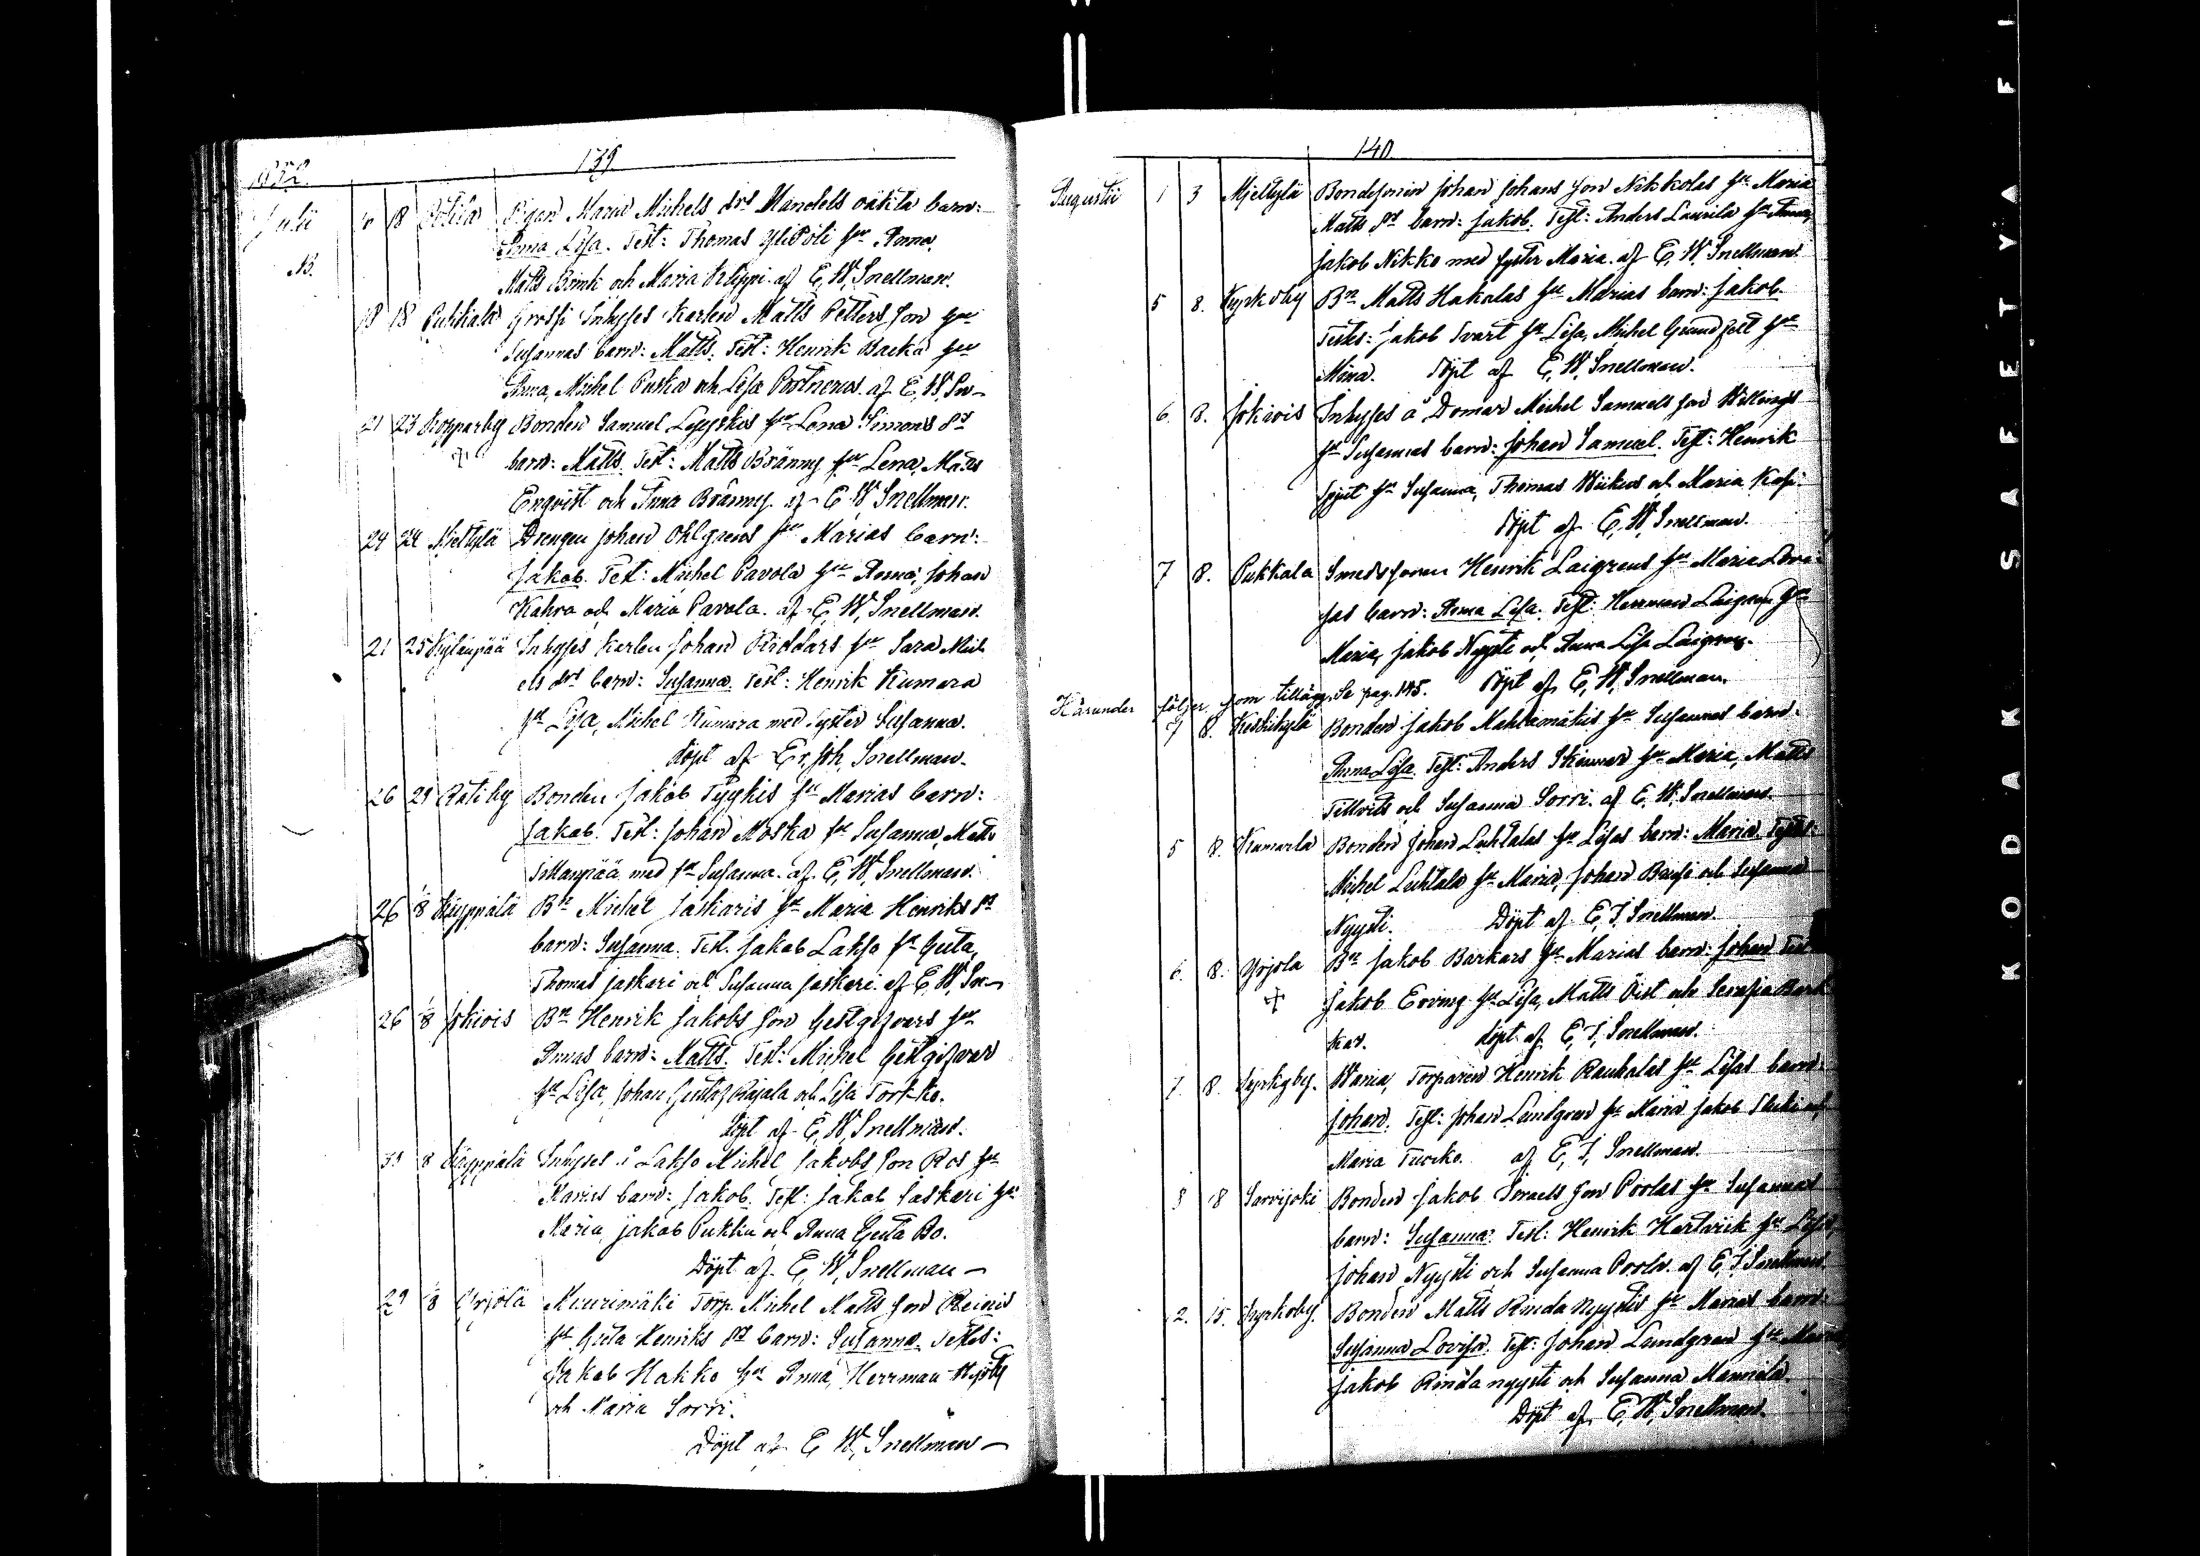 1852.
139
Julii
NB.
18 Pigan Maria Michels drs Mandels oäkta barn:
Anna Lisa. Test: Thomas Ylipoli hu Anna,
Matts Brink och Maria Klippi. af E. W. Snellman.
18 18 Pukkala Inhyses Karlen Matts Petters son hu
Susannas barn: Matts. Test: Henrik Backa hu
Anna, Michel Puska och Lisa af E. W. Sn-
21 23 Kopparby Bonden Samuel hu Lena Simons dr
barn: Matts. Test: Matts Bränny hu Lena, Matts
Enqvist och Anna Bränny. af E. W. Snellman.
24 24 Mieltylä Drengen Johan Ohlgrens hu Marias barn:
Jakob. Test: Michel Pavola hu Anna, Johan
Kahra och Maria Pavola. af E. W. Snellman.
21 25 Kylänpää Inhyses karlen Johan Riddars hu Sara Mich
els drs barn: Susanna. Test: Henrik Kumara
hu Lisa, Michel Kumara med syster Susanna.
Döpt af Er. Joh. Snellman.
26 29 Rätiby Bonden Jakob Tyykis hu Marias barn:
Jakob. Test: Johan Koska hu Susanna, Matts
med hu Susanna. af E. W. Snellman.
26 1/8 Kyppälä Bn Michel Jaskaris hu Maria Henriks dr
barn: Susanna. Test. Jakob Lakso hu Greta,
Thomas Jaskari och Susanna Jaskari. af E. W. Sn-
26 1/8 Jokivis Bn Henrik Jakobs son Gestgifvars hu
Annas barn: Matts. Test: Michel Gestgifvar
hu Lisa, Johan Gustaf Rajala och Lisa Torkko.
Döpt af E. W. Snellman.
8 Kyppälä Inhyses i Lakso Michel Jakobs son Ros hu
Marias barn: Jakob. Test: Jakob Jaskari hu
Maria, Jakob Pukkin och Anna Greta Bo.
Döpt af E. W. Snellman-
29 1/8 Yrjölä Muurimäki Torp. Michel Matts son Reinis
hu Greta Henriks dr barn: Susanna. Testes:
Jakob Hakko hu Anna, Herrman
och Maria Sorri.
Döpt af E. W. Snellman-
140
Augustii 1 3 Mieltylä Bondesonen Johan Johans son Nikkolas hu Maria
Matts dr barn: Jakob. Test: Anders Laurila hu Anna,
Jakob Nikko med syster Maria. af E. W. Snellman.
5 8. Kyrkoby Bn Matts Hakalas hu Marias barn: Jakob.
Testes: Jakob Svart hu Lisa, Michel Grundfelt hu
Mina. Döpt af E. W. Snellman.
6. 8. Jokivis Inhyses å Domar Michel Samuels son Willings
hu Susannas barn: Johan Samuel. Test: Henrik
Spjut hu Susanna, Thomas Wiikus och Maria
Döpt af E. W. Snellman.
7 8. Pukkala Smedsonen Henrik Laigrens hu Maria Lovi-
sas barn: Anna Lisa. Test: Herrman Laigren hu
Maria, Jakob Nyysti och Anna Lisa Laigren.
Döpt af E. W. Snellman.
Härunder följer som tillägg. Se pag. 145.
7 8. Keskikylä Bonden Jakob Kahlamäkis hu Susannas barn:
Anna Lisa. Test: Anders hu Maria, Matts
och Susanna Sorri. af E. W. Snellman.
5 8. Kumarla Bonden Johan Luhtalas hu Lisas barn: Maria. Testes:
Michel Luhtala hu Maria, Johan och Susanna
Nyysti. Döpt af E. J. Snellman.
6. 8. Yrjola Bn Jakob Barkars hu Marias barn: Johan. Test:
Jakob Erving hu Lisa, Matts Öist och Serafia Bar
kar. Döpt af E. J. Snellman.
7. 8. Kyrkoby. Torparen Henrik Raukalas hu Lisas barn:
Johan. Test: Johan Lundgren hu Maria, Jakob och
Maria af E. J. Snellman.
8 18 Sarvijoki Bonden Jakob Israels son Poolas hu Susannas
barn: Susanna. Test: Henrik hu Lisa,
Johan Nyysti och Susanna Poola. af E. J. Snellman.
2. 15. Kyrkoby. Bonden Matts Rinda nyystis hu Marias barn:
Susanna Lovisa. Test: Johan Lundgren hu Maria
Jakob Rinda nyysti och Susanna Mannila.
Döpt af E. W. Snellman.
KODAK SAFETY FI